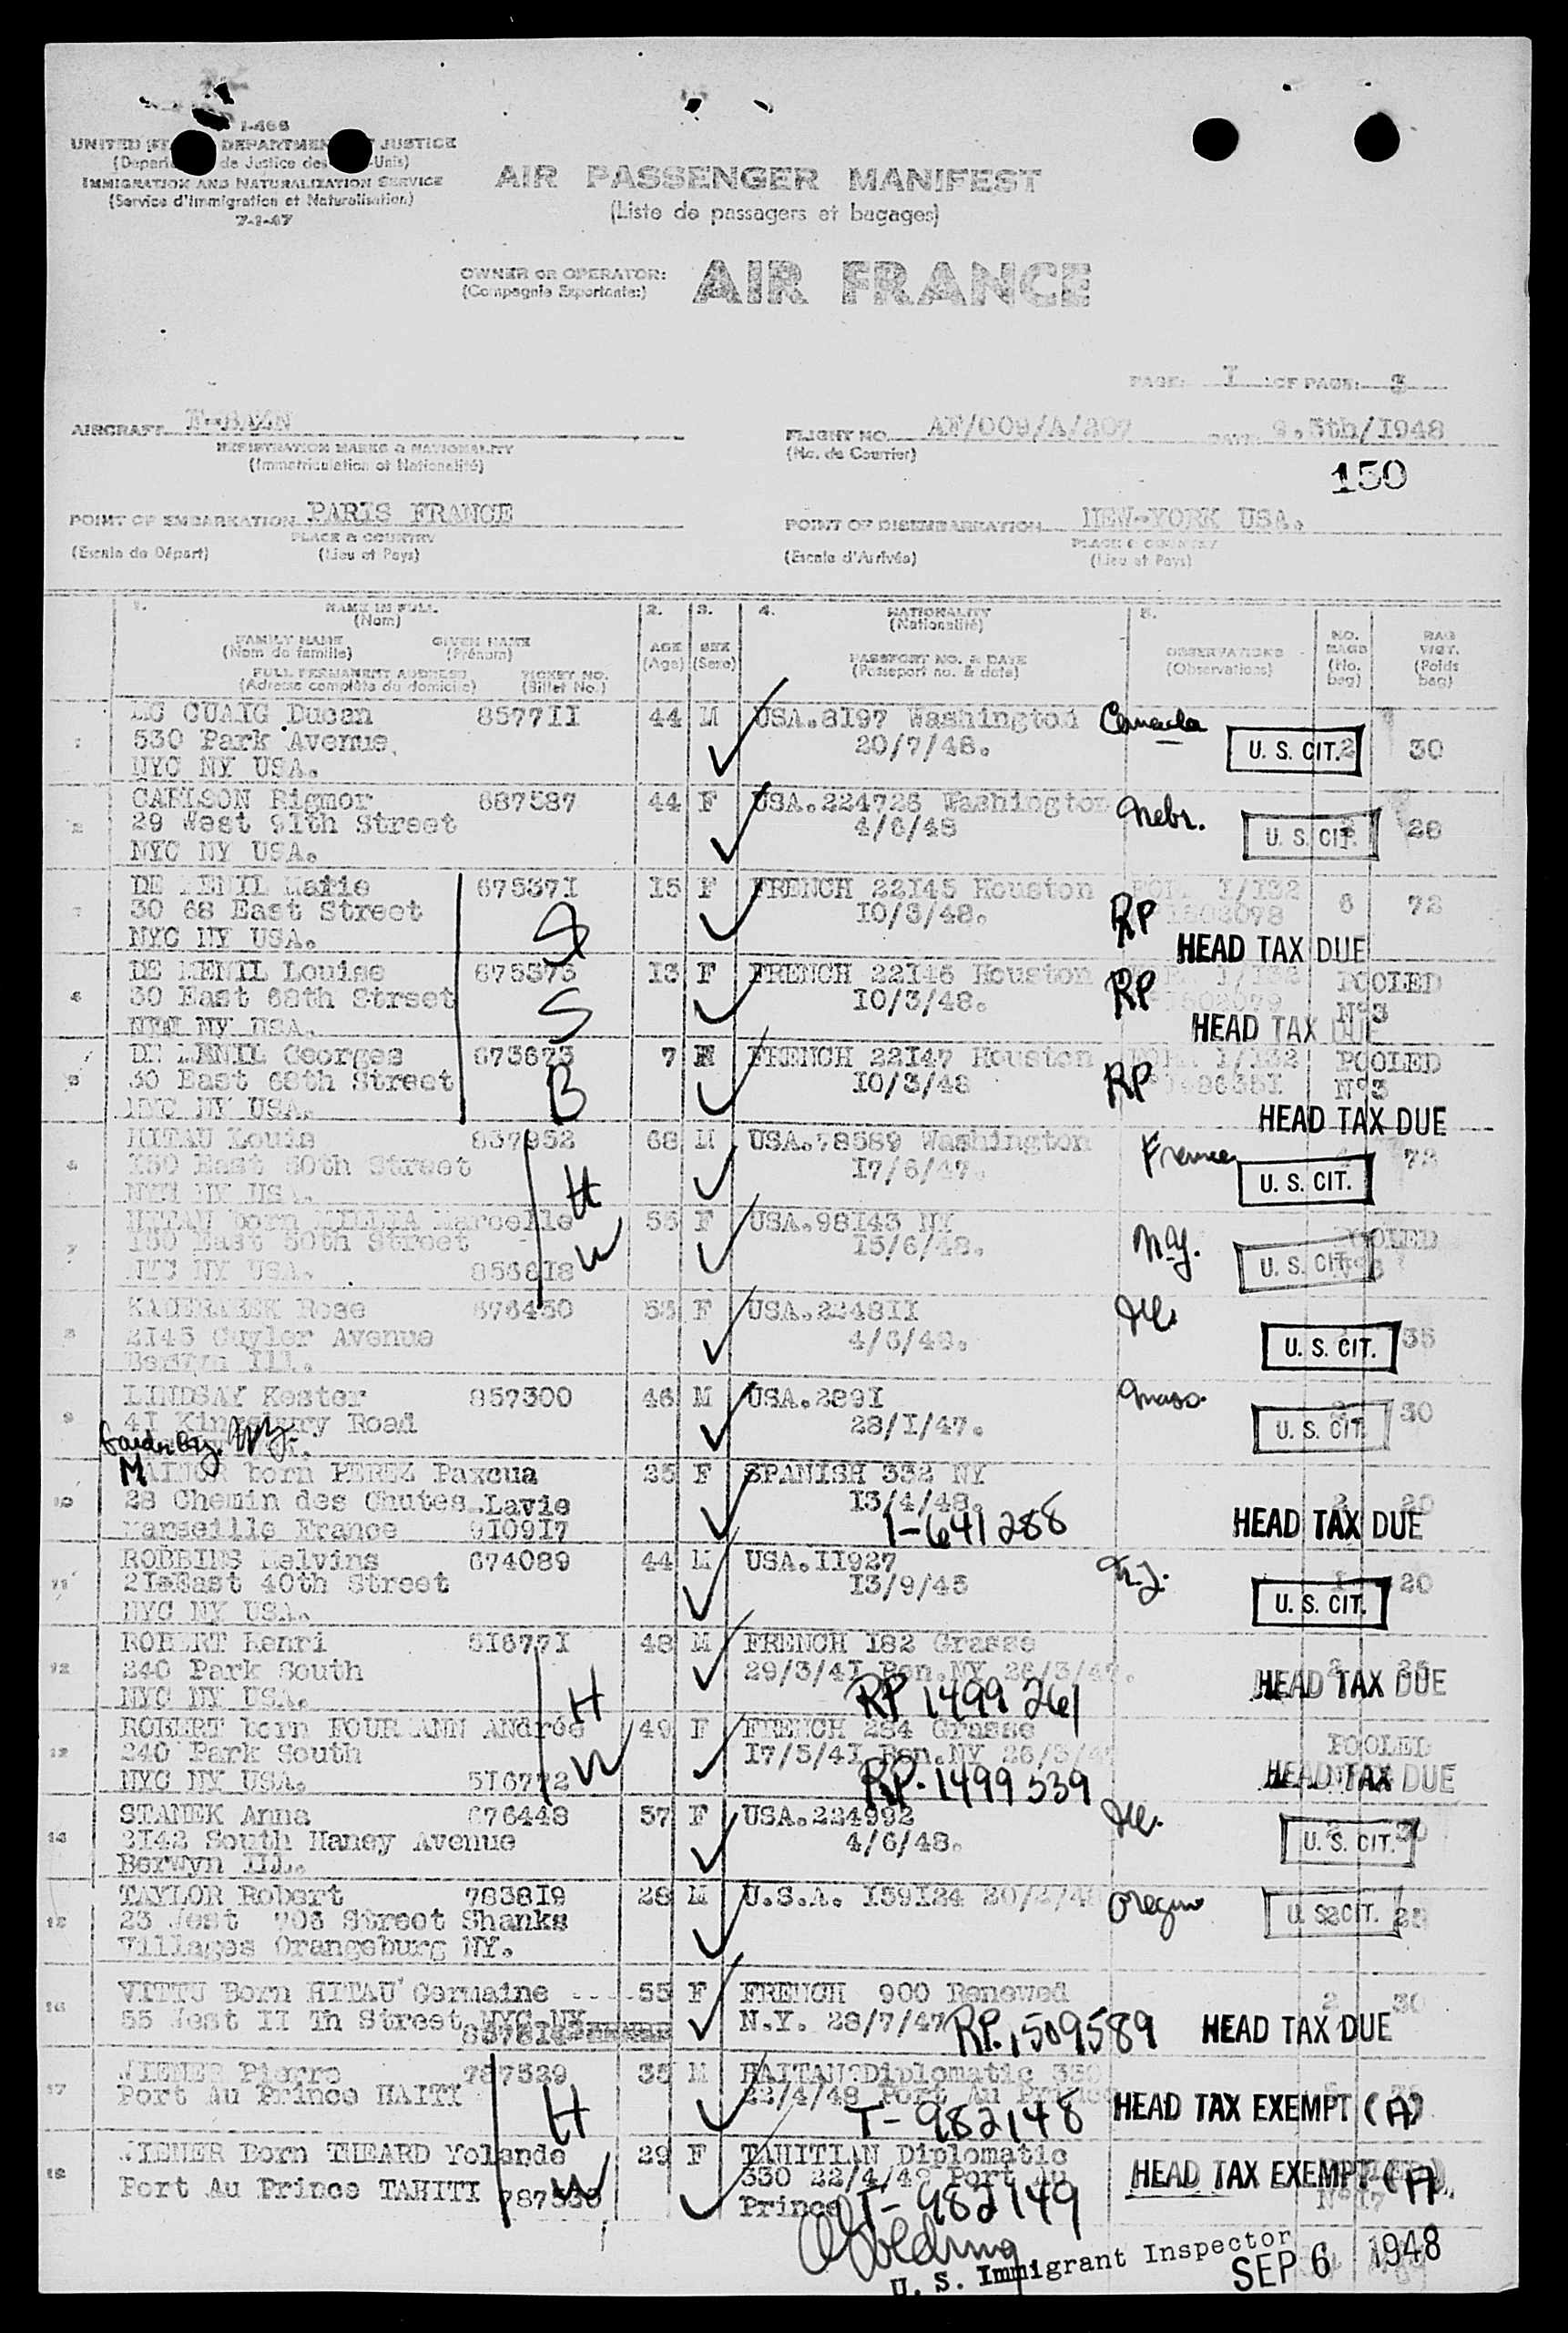 I-466
UNITED DEPARTMENT JUSTICE
de Justice des
IMMIGRATION AND NATURALIZATION SERVICE
(Service d'Immigration et Naturalisation)
7-1-47
AIR PASSENGER MANIFEST
(Liste de passagers et bagages)
OWNER OR OPERATOR: AIR FRANCE
(Compagnie Exportante:)
PAGE: I OF PAGE: 3
AIRCRAFT
REGISTRATION MARKS & NATIONALITY
(Immatriculation et Nationalité)
FLIGHT NO. AF/009/A/207 DATE 9.5th/1948
(No. de Courrier)
150
POINT OF EMBARKATION PARIS FRANCE
PLACE & COUNTRY
(Escale de Départ) (Lieu et Pays)
POINT OF DISEMBARKATION NEW-YORK USA.
PLACE & COUNTRY
(Escale d'Arrivée) (Lieu et Pays)
1. NAME IN FULL (Nom)
FAMILY NAME (Nom de famille) GIVEN NAME (Prénom)
FULL PERMANENT ADDRESS (Adresse complète du domicile) TICKET NO. (Billet No.)
2. AGE (Age)
3. SEX (Sexe)
4. NATIONALITY (Nationalité)
PASSPORT NO. & DATE (Passeport no. & date)
5. OBSERVATIONS (Observations)
NO. BAGS (No. bag)
BAG WGT. (Poids bag)
1 MC CUAIG Ducan 857711 44 M USA.8197 Washington Canada
530 Park Avenue. 20/7/48. U. S. CIT. 2 30
NYC NY USA.
2 CARLSON Rigmor 687587 44 F USA.224726 Washington Nebr.
29 West 91th Street 4/6/48 U. S. CIT. 26
NYC NY USA.
DE MENIL Marie 675371 15 F FRENCH 22145 Houston 1/132 6 72
30 68 East Street S 10/3/48. RP 1502078
NYC NY USA. HEAD TAX DUE
4 DE MENIL Louise 675375 13 F FRENCH 22146 Houston 1/132 POOLED
30 East 68th Street S 10/3/48. RP 1502079 N°3
NY USA. HEAD TAX DUE
5 DE MENIL Georges 675673 7 FRENCH 22147 Houston 1/132 POOLED
30 East 68th Street B 10/3/48 RP N°3
NYC NY USA. HEAD TAX DUE
6 HITAU Louis 857952 68 M USA.78589 Washington France 72
150 East 50th Street H 17/6/47. U. S. CIT.
7 HITAU born Marcelle 55 F USA.98143 NY N.Y. POOLED
150 East 50th Street W 15/6/48. U. S. CIT.
NYC NY USA. 856818
8 Rose 676450 53 F USA.224811 Ill.
2145 Cuyler Avenue 4/6/48. U. S. CIT. 35
Berwyn Ill.
9 LINDSAY Kester 857300 46 M USA.2891 Mass.
41 Kingsbury Road 28/1/47. U. S. CIT. 30
10 born PEREZ Pascua 25 F SPANISH 332 NY
28 Chemin des Chutes Lavie 13/4/48. 2 20
Marseille France 910917 1-641288 HEAD TAX DUE
11 ROBBINS Melvins 674089 44 M USA.11927 N.J.
East 40th Street 13/9/45 1 20
NYC NY USA. U. S. CIT.
12 ROBERT Henri 516771 48 M FRENCH 182 Grasse
240 Park South 29/3/41 Ren.NY 26/3/47.
NYC NY USA. H RP 1499261 HEAD TAX DUE
ROBERT born Andrée 49 F FRENCH 284 Grasse
240 Park South W 17/5/41 Ren.NY POOLED
NYC NY USA. 516772 RP. 1499539 HEAD TAX DUE
14 STANEK Anna 676448 57 F USA.224992 Ill.
2142 South Haney Avenue 4/6/48. U. S. CIT. 30
Berwyn Ill.
TAYLOR Robert 783819 28 M U.S.A. 159124 20/2/48 Oregon
23 West 706 Street Shanks U. S. CIT. 25
Villages Orangeburg NY.
16 VITTU Born HITAU Germaine 55 F FRENCH 900 Renewed 2 30
55 West II Th Street NYC NY N.Y. 28/7/47 RP. 1509589 HEAD TAX DUE
17 WIENER Pierre 787529 35 M HAITAN Diplomatic 330
Port Au Prince HAITI H 22/4/48 Port Au Prince
T-982148 HEAD TAX EXEMPT (A)
18 WIENER Born THEARD Yolande 29 F TAHITIAN Diplomatic
Port Au Prince TAHITI 787530 W 330 22/4/48 Port Au HEAD TAX EXEMPT (A)
Prince T-982149 N°17
Golding
U. S. Immigrant Inspector
SEP 6 1948